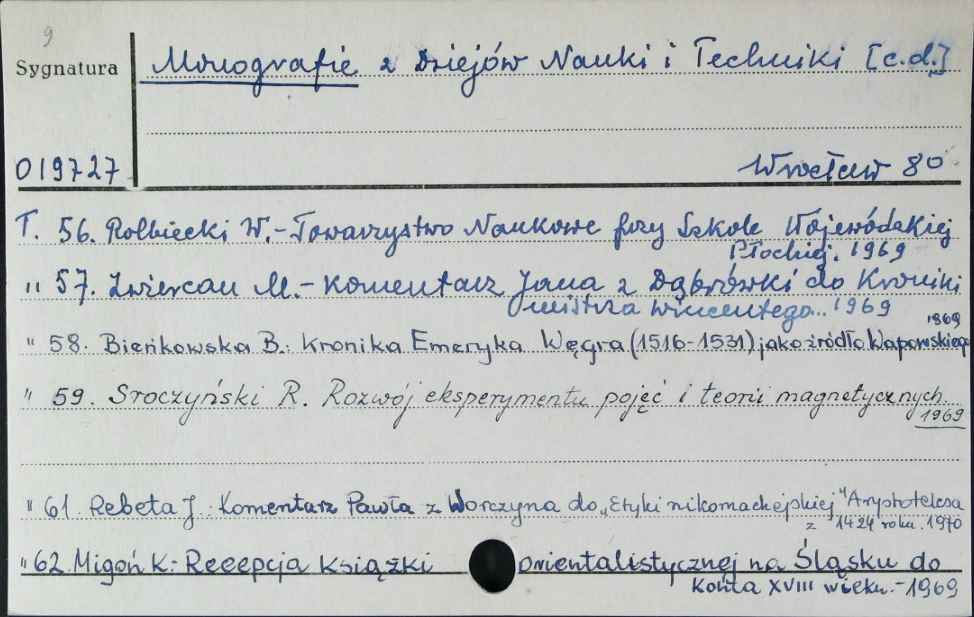 9
Sygnatura
Monografie z Dziejów Nauki i Techniki [c.d.]
019727
Wrocław 80
T. 56. Rolbiecki W.- Towarzystwo Naukowe przy Szkole Wojewódzkiej
Płockiej. 1969
" 57. Zwiercan M.- Komentarz Jana z Dąbrówki do Kroniki
mistrza Wincentego.. 1969
1969
" 58. Bieńkowska B.: Kronika Emeryka Węgra (1516-1531) jako źródło Wapowskiego
" 59. Sroczyński R. Rozwój eksperymentu pojęć i teorii magnetycznych.
1969
" 61. Rebeta J. Komentarz Pawła z Worczyna do „Etyki nikomachejskiej" Arystotelesa
z 1424 roku. 1970
" 62 Migoń K: Recepcja książki orientalistycznej na Śląsku do
końca XVIII wieku.- 1969